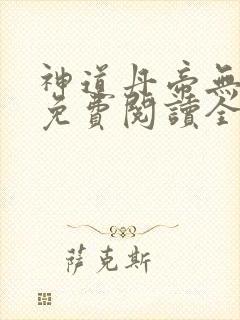 神道丹帝無
免費閱讀全
萨克斯